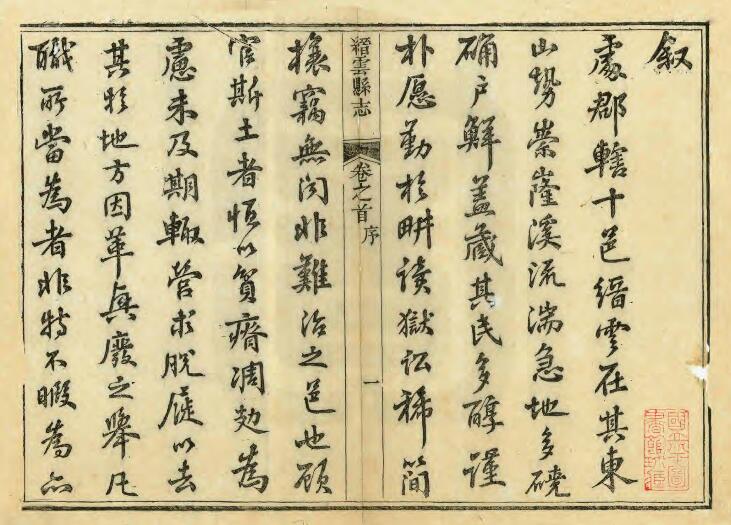 叙
處郡轄十邑縉雲在其東
山勢崇隆溪流湍急地多磽
确户鮮蓋藏其民多醇謹
朴愿勤於畊讀獄訟稀簡
縉雲縣志
卷之首
序
一
攘竊無聞非難治之邑也顧
官斯土者恒以貧瘠凋敝為
慮未及期輒營求脫屣以去
其於地方因革興廢之舉凡
職所當為者非特不暇為亦